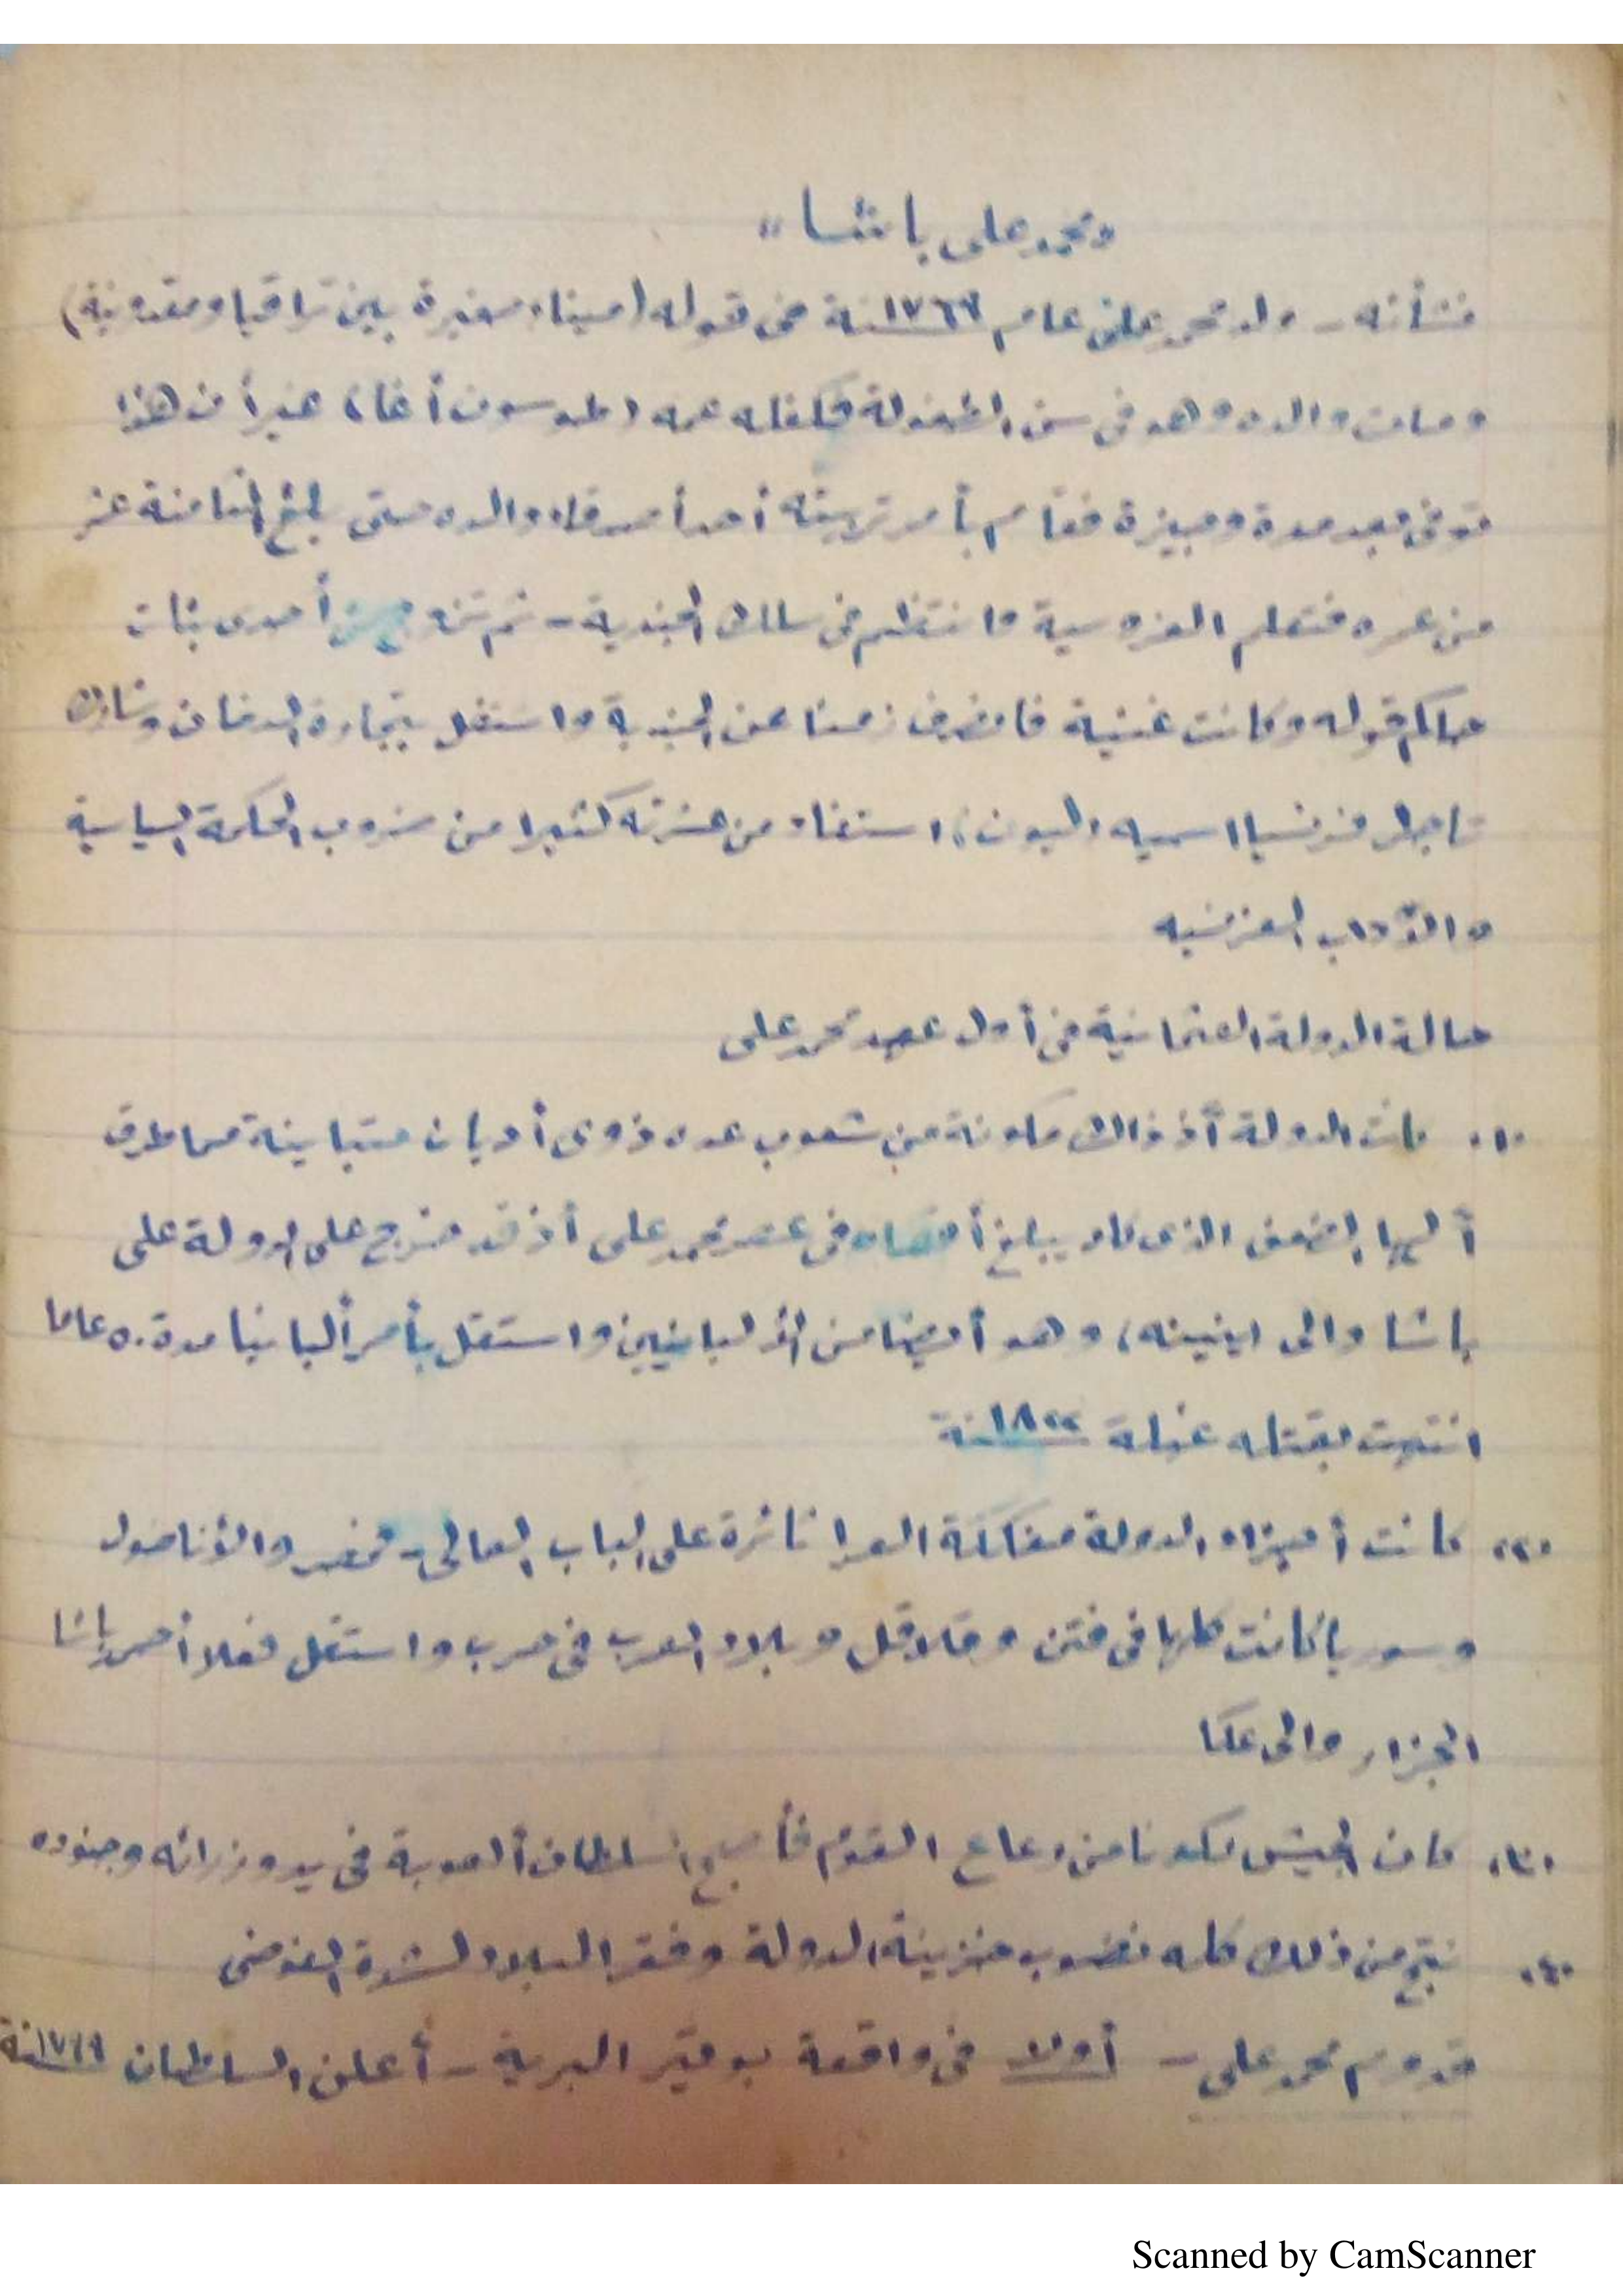 "محمد على باشا"
نشأته - ولد محمد على عام ١٧٦٩ سنة فى قوله (ميناء صغيرة بين تراقيا ومقدونية)
ومات والده وهو فى سن الطفولة فكفله عمه (طوسون أغا) غير أن هذا
توفى بعد مدة وجيزة فقام بأمر تربيته أحد أصدقاء والده حتى بلغ الثامنة عشر
من عمره فتعلم الفروسية وانتظم فى سلك الجندية - ثم تزوج من أحدى بنات
حاكم قوله وكانت غنية فانصرف زمنا عن الجندية واشتغل بتجارة الدخان وشارك
تاجرا فرنسيا اسميه (ليون) استفاد من عشرته كثيرا من ضروب الحكمة السياسية
والآداب الفرنسيه
حالة الدولة العثمانية فى أول عهد محمد على
٠١٠ كانت الدولة أذ ذاك مكونة من شعوب عده ذوى أديان متباينة مما طرق
أليها الضعف الذى كاد يبلغ أقصاه فى عصر محمد على أذ قد خرج على الدولة على
باشا والى ، وهو أيضا من الألبانيين واستقل بأمر ألبانيا مدة ٥٠ عاما
انتهت بقتله غيلة ١٨٢٢ سنة
٠٢٠ كانت أجزاء الدولة مفككة العرا ثائرة على الباب العالى - فمصر والأناضول
وسوريا كانت كلها فى فتن وقلاقل وبلاد العرب فى حرب واستقل فعلا أحمد باشا
الجزار والى عكا
٠٣٠ كان الجيش مكونا من رعاع القوم فأصبح السلطان ألعوبة فى يد وزرائه وجنوده
٠٤٠ نتج من ذلك كله نضوب خزينة الدولة وفقر البلاد لشدة الفوضى
قدوم محمد على - أولا فى واقعة بوقير البرية - أعلن السلطان سنة
Scanned by CamScanner